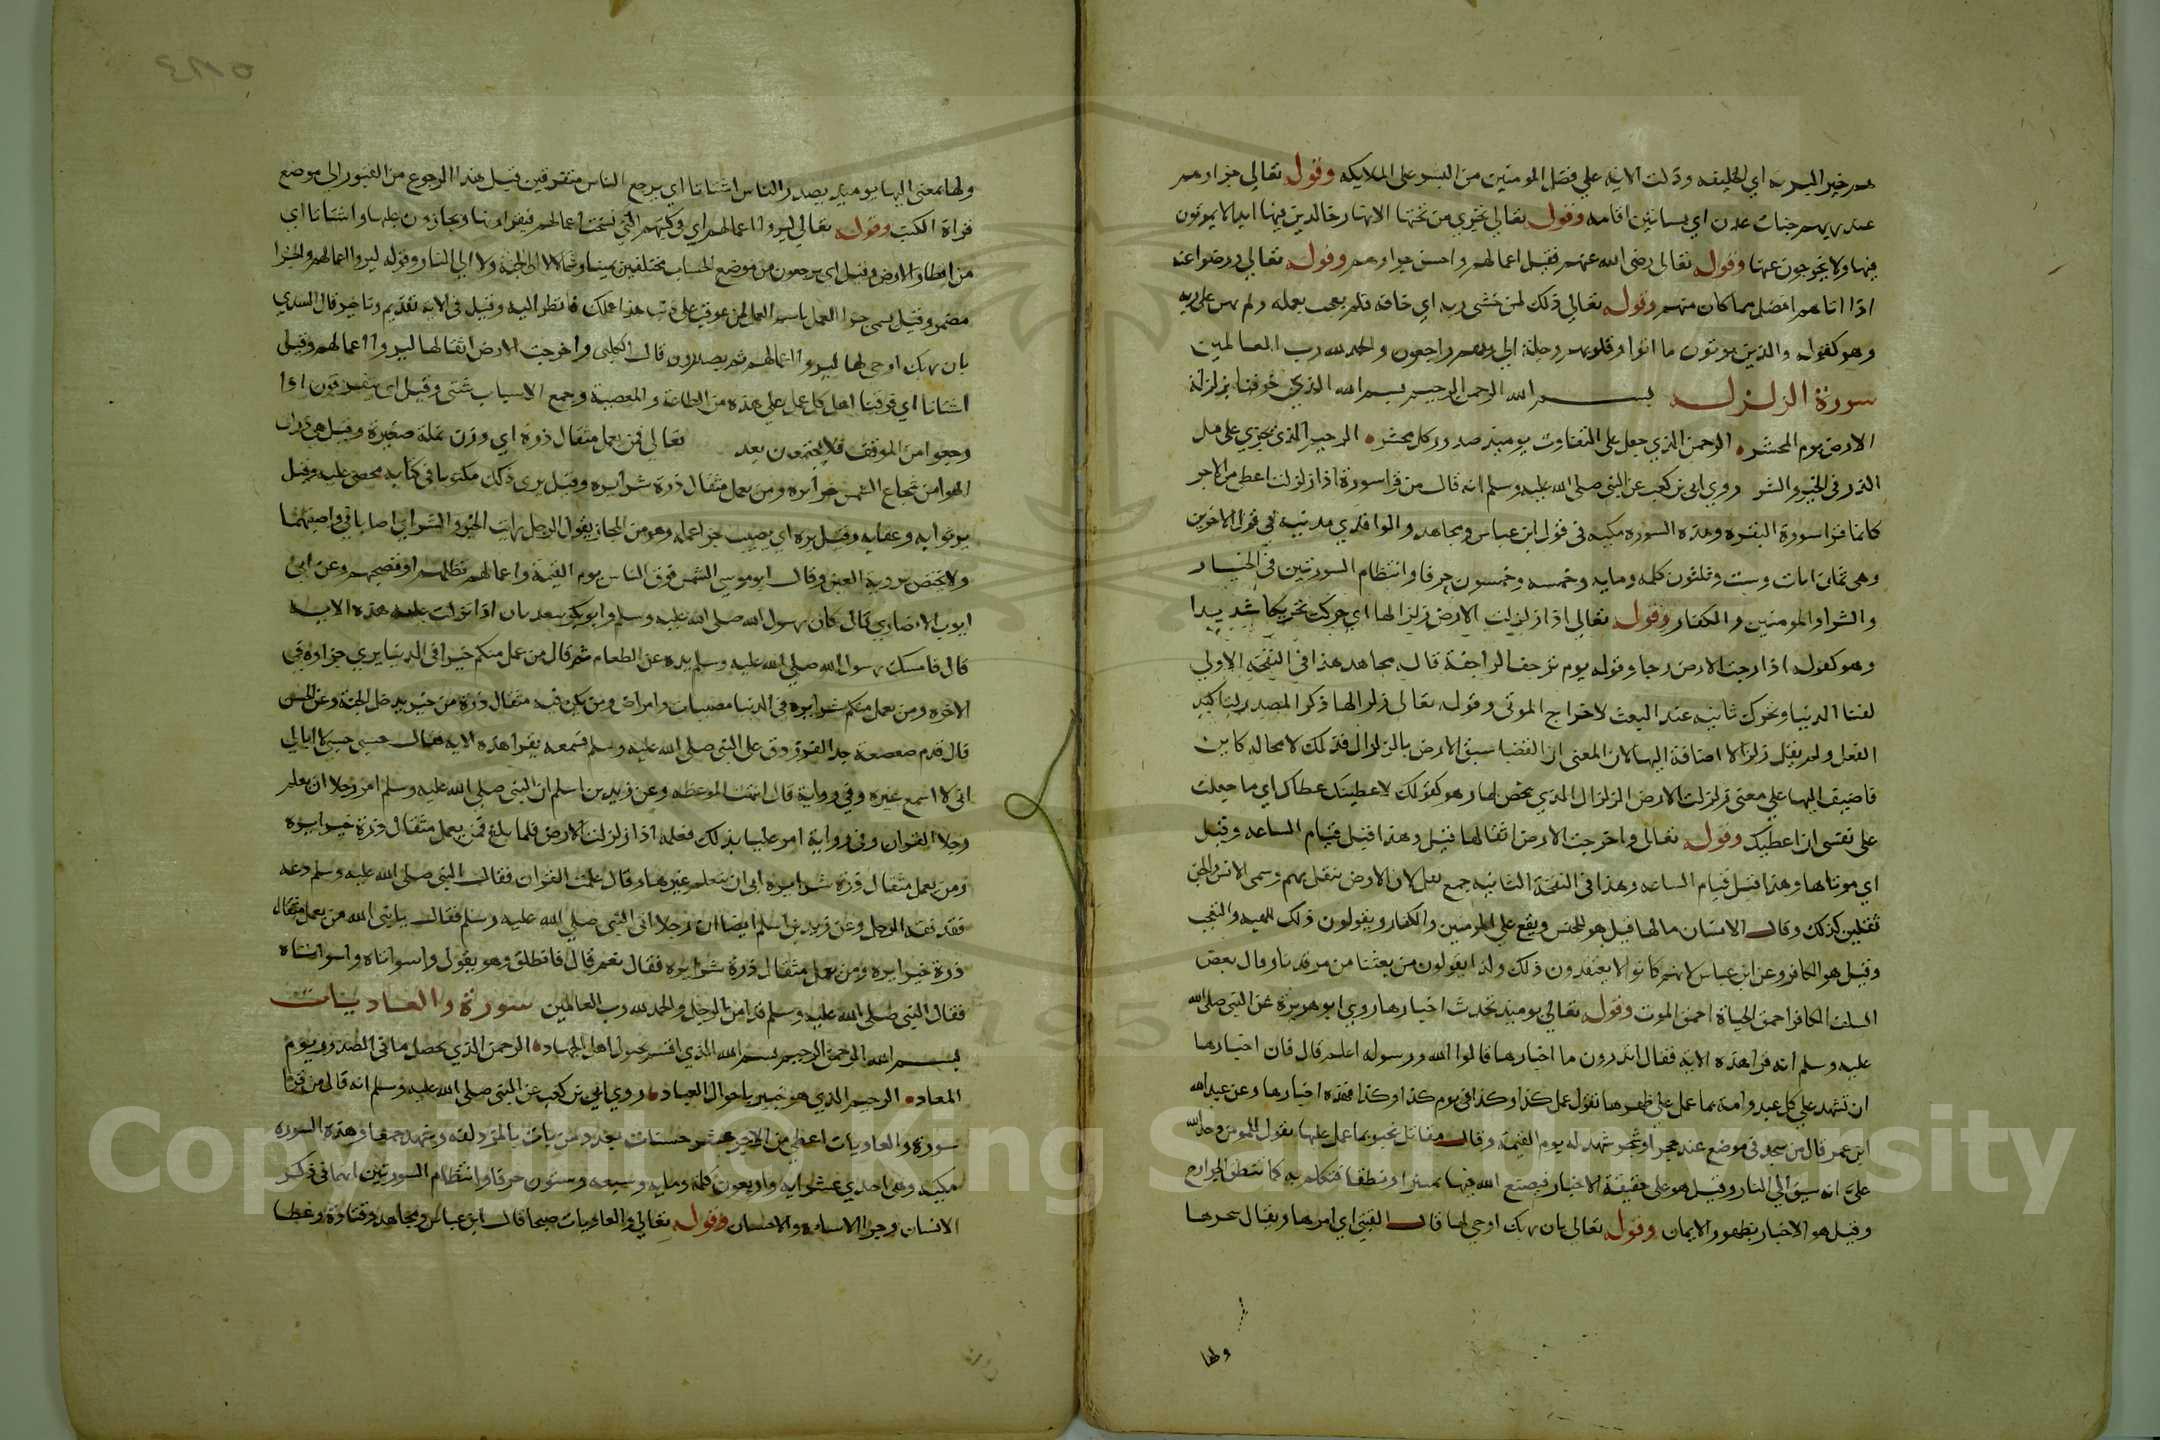 هم خير البريه اي الخليقه ودلت الايه علي فضل المومنين من البشر على الملايكه وقوله تعالي جزاوهم
عند ربهم جنات عدن اي بساتين اقامه وقوله تعالي تجري من تحتها الانهار خالدين فيها ابدا لا يموتون
فيها ولا يخرجون عنها وقوله تعالى رضى الله عنهم فقبل اعمالهم واحسن جزاوهم وقوله تعالي ورضوا عنه
اذا اتاهم افضل مما كان منهم وقوله تعالي ذلك لمن خشى ربه اي خافه فلم يعجب بعمله ولم يمن على ربه
وهو كقوله والذين يوتون ما اتوا وقلوبهم وجلة الي ربهم راجعون والحمد لله رب العالمين
سورة الزلزله بسم الله الرحمن الرحيم بسم الله الذي خوفنا بزلزلة
الارض يوم المحشر الرحمن الذي جعل على التفاوت يوميذ صدور كل محشر الرحيم الذي يجزي على مثل
الذر في الخير والشر وروي ابي بن كعب عن النبي صلى الله عليه وسلم انه قال من قرا سورة اذا زلزلت اعطي من الاجر
كانما قرا سورة البقره وهذه السوره مكيه في قول ابن عباس ومجاهد والواقدي مدنيه في قول الاخرين
وهي ثمان ايات وست وثلثون كلمه ومايه وخمسه وخمسون حرفا وانتظام السورتين في الخيار
والشرار المومنين والكفار وقوله تعالى اذا زلزلت الارض زلزالها اي حركت تحريكا شديدا
وهو كقوله اذا رجت الارض رجا وقوله يوم ترجف الراجفة قال مجاهد هذا في النفخه الاولي
لفنا الدنيا وتحرك ثانيه عند البعث لاخراج الموتى وقوله تعالى زلزالها ذكر المصدر لتاكيد
الفعل ولم يقل زلزالا اضافة اليها لان المعنى ان القضا سبق الارض بالزلزال فذلك لا محاله كاين
فاضيف اليها علي معنى زلزلت الارض الزلزال الذي يخص لها وهو كقولك لاعطينك عطاك اي ما جعلت
على نفسى ان اعطيك وقوله تعالى واخرجت الارض اثقالها قيل وهذا قبل قيام الساعه وقيل
اي موتاها وهذا قبل قيام الساعه وهذا في النفخة الثانيه جمع ثقل لان الارض تثقل بهم وسمى الانس والجن
ثقلين كذلك وقال الانسان مالها قيل هو للجنس ويقع علي المومنين والكفار ويقولون ذلك للهيبه والتعجب
وقيل هو الكافر وعن ابن عباس لانهم كانوا لا يعتقدون ذلك ولذا يقولون من بعثنا من مرقدنا وقال بعض
السلف الكافر احمق الحياة احمق الموت وقوله تعالي يوميذ تحدث اخبارها روي ابو هريرة عن النبي صلى الله
عليه وسلم انه قرا هذه الايه فقال اتدرون ما اخبارها قالوا الله ورسوله اعلم قال فان اخبارها
ان تشهد علي كل عبد وامة بما عمل علي ظهرها تقول عمل كذا وكذا في يوم كذا وكذا فهذه اخبارها وعن عبد الله
ابن عمر قال من سجد في موضع عند حجر او شجر شهد له يوم القيمة وقال مقاتل تخبر بما عمل عليها يقول المومن وحد الله
عليّ انه سيق الي النار وقيل هو على حقيقة الاخبار فيصنع الله فيها تمييزا ونطقا فتكلم به كما تنطق الجوارح
وقيل هو الاخبار بظهور الايمان وقوله تعالي بان ربك اوحي لها قال القتبي اي امرها ويقال سخرها
ولها
ولها بمعنى اليها يوميذ يصدر الناس اشتاتا اي يرجع الناس متفرقين قيل هذا الرجوع من القبور الى موضع
قراة الكتب وقوله تعالي ليروا اعمالهم اي في كتبهم التي نسخت اعمالهم فيقراونها ويجازون عليها واشتاتا اي
من اقطار الارض وقيل اي يرجعون من موضع الحساب مختلفين يمينا وشمالا الى الجنة ولا الي النار وقوله ليروا اعمالهم والجزا
مضمر وقيل سمى جزا العمل باسم العمل لمن عوقب على ذنب هذا عملك فانظر اليه وقيل في الايه تقديم وتاخير قال السدي
بان ربك اوحى لها ليروا اعمالهم ثم يصدرون قال الكلبي واخرجت الارض اثقالها ليروا اعمالهم وقيل
اشتاتا اي فرقنا اهل كل عمل علي حده من الطاعة والمعصية وجمع الاسباب شتى وقيل اى يتفرقون اذا
رجعوا من الموقف فلا يجتمعون بعد تعالى فمن يعمل مثقال ذرة اي وزن نملة صغيرة وقيل هي ذرات
الهوا من شعاع الشمس خيرا يره ومن يعمل مثقال ذرة شرا يره وقيل يرى ذلك مكتوبا في كتابه محصى عليه وقيل
يرى ثوابه وعقابه وقيل يره اي يصيب جزا عمله وهو من المجاز يقول الرجل رايت الخير والشر اي اصاباني واصبتهما
ولا يختص بروية العين وقال ابو موسى الشمس فوق الناس يوم القيمة واعمالهم تظلهم او تضحيهم وعن ابى
ايوب الانصاري قال كان رسول الله صلى الله عليه وسلم وابو بكر يتغديان اذا نزلت عليه هذه الايه
قال فامسك رسول الله صلي الله عليه وسلم يده عن الطعام ثم قال من عمل منكم خيرا في الدنيا يري جزاوه في
الاخره ومن يعمل منكم شرا يره في الدنيا مصيبات وامراض ومن يكن فيه مثقال ذرة من خير يدخل الجنة وعن الحسن
قال قدم صعصعة جد الفرزدق على النبي صلى الله عليه وسلم فسمعه يقرا هذه الايه فقال حسبي حسبي لا ابالي
ان لا اسمع غيره وفي رواية قال انتهت الموعظه وعن زيد بن اسلم ان النبي صلى الله عليه وسلم امر رجلا ان يعلم
رجلا القران وفي رواية امر عليا بذلك فعلمه اذا زلزلت الارض فلما بلغ فمن يعمل مثقال ذرة خيرا يره
ومن يعمل مثقال ذرة شرا يره ابي ان يتعلم غيرها وقال علمت القران فقال النبي صلى الله عليه وسلم دعه
فقد فقه الرجل وعن زيد بن اسلم ايضا ان رجلا اتى النبي صلي الله عليه وسلم فقال يا نبي الله من يعمل مثقال
ذرة خيرا يره ومن يعمل مثقال ذرة شرا يره فقال نعم قال فانطلق وهو يقول واسواتاه واسواتاه
فقال النبي صلى الله عليه وسلم قد امن الرجل والحمد لله رب العالمين سورة والعاديات
بسم الله الرحمن الرحيم بسم الله الذي اقسم بخيول اهل الجهاد الرحمن الذي يحصل ما في الصدور يوم
المعاد الرحيم الذي هو خبير باحوال العباد وروي ابي بن كعب عن النبي صلى الله عليه وسلم انه قال من قرا
سورة والعاديات اعطي من الاجر عشر حسنات بعدد من بات بالمزدلفه وشهد جمعا وهذه السوره
مكيه وهي احدي عشر ايه واربعون كلمة ومايه وسبعه وستون حرفا وانتظام السورتين انهما في ذكر
الانسان وجزا الاساءه والاحسان وقوله تعالي والعاديات ضبحا قال ابن عباس ومجاهد وقتادة وعطا
Copyright © King Saud University
1957